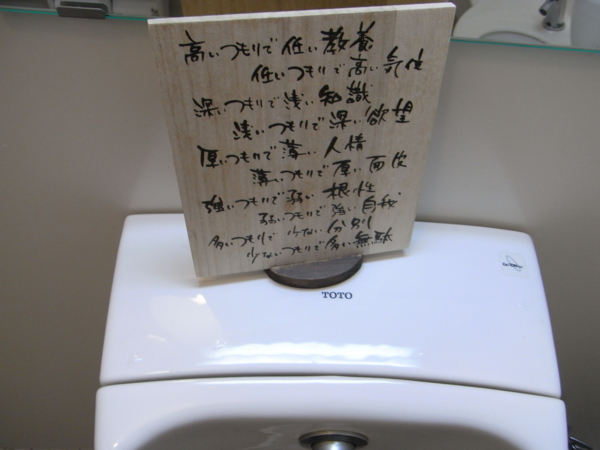 高いつもりで低い教養
低いつもりで高い気位
深いつもりで浅い知識
浅いつもりで深い欲望
厚いつもりで薄い人情
薄いつもりで厚い面皮
強いつもりで弱い根性
弱いつもりで強い自我
多いつもりで少ない分別
少ないつもりで多い無駄
TOTO